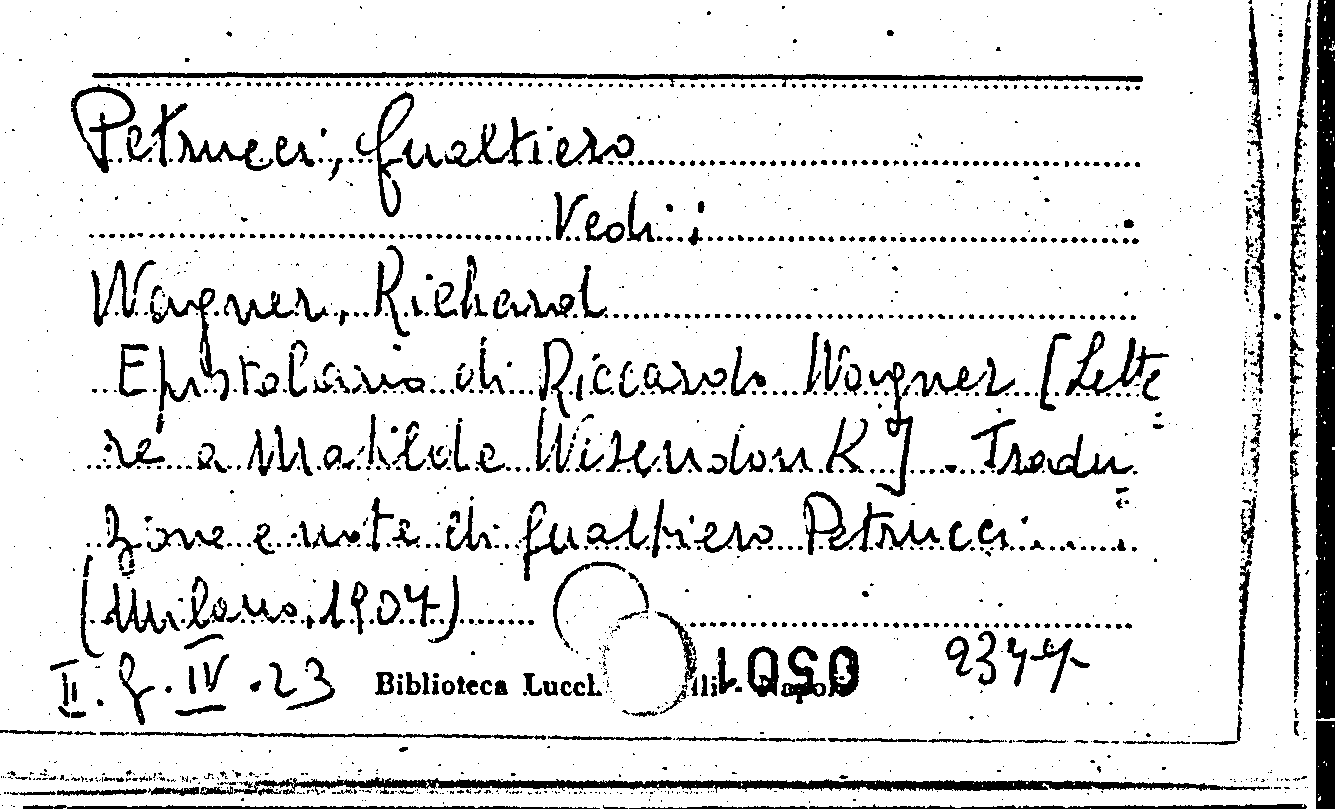 Petrucci, Gualtiero
Vedi:
Wagner, Richard
Epistolario di Riccardo Wagner [Lette
re a Matilde Wisendonk]. Tradu
zione e note di Gualtiero Petrucci...
(Milano, 1907)
II. G. IV. 23
Biblioteca Lucch lli - Napoli
0501